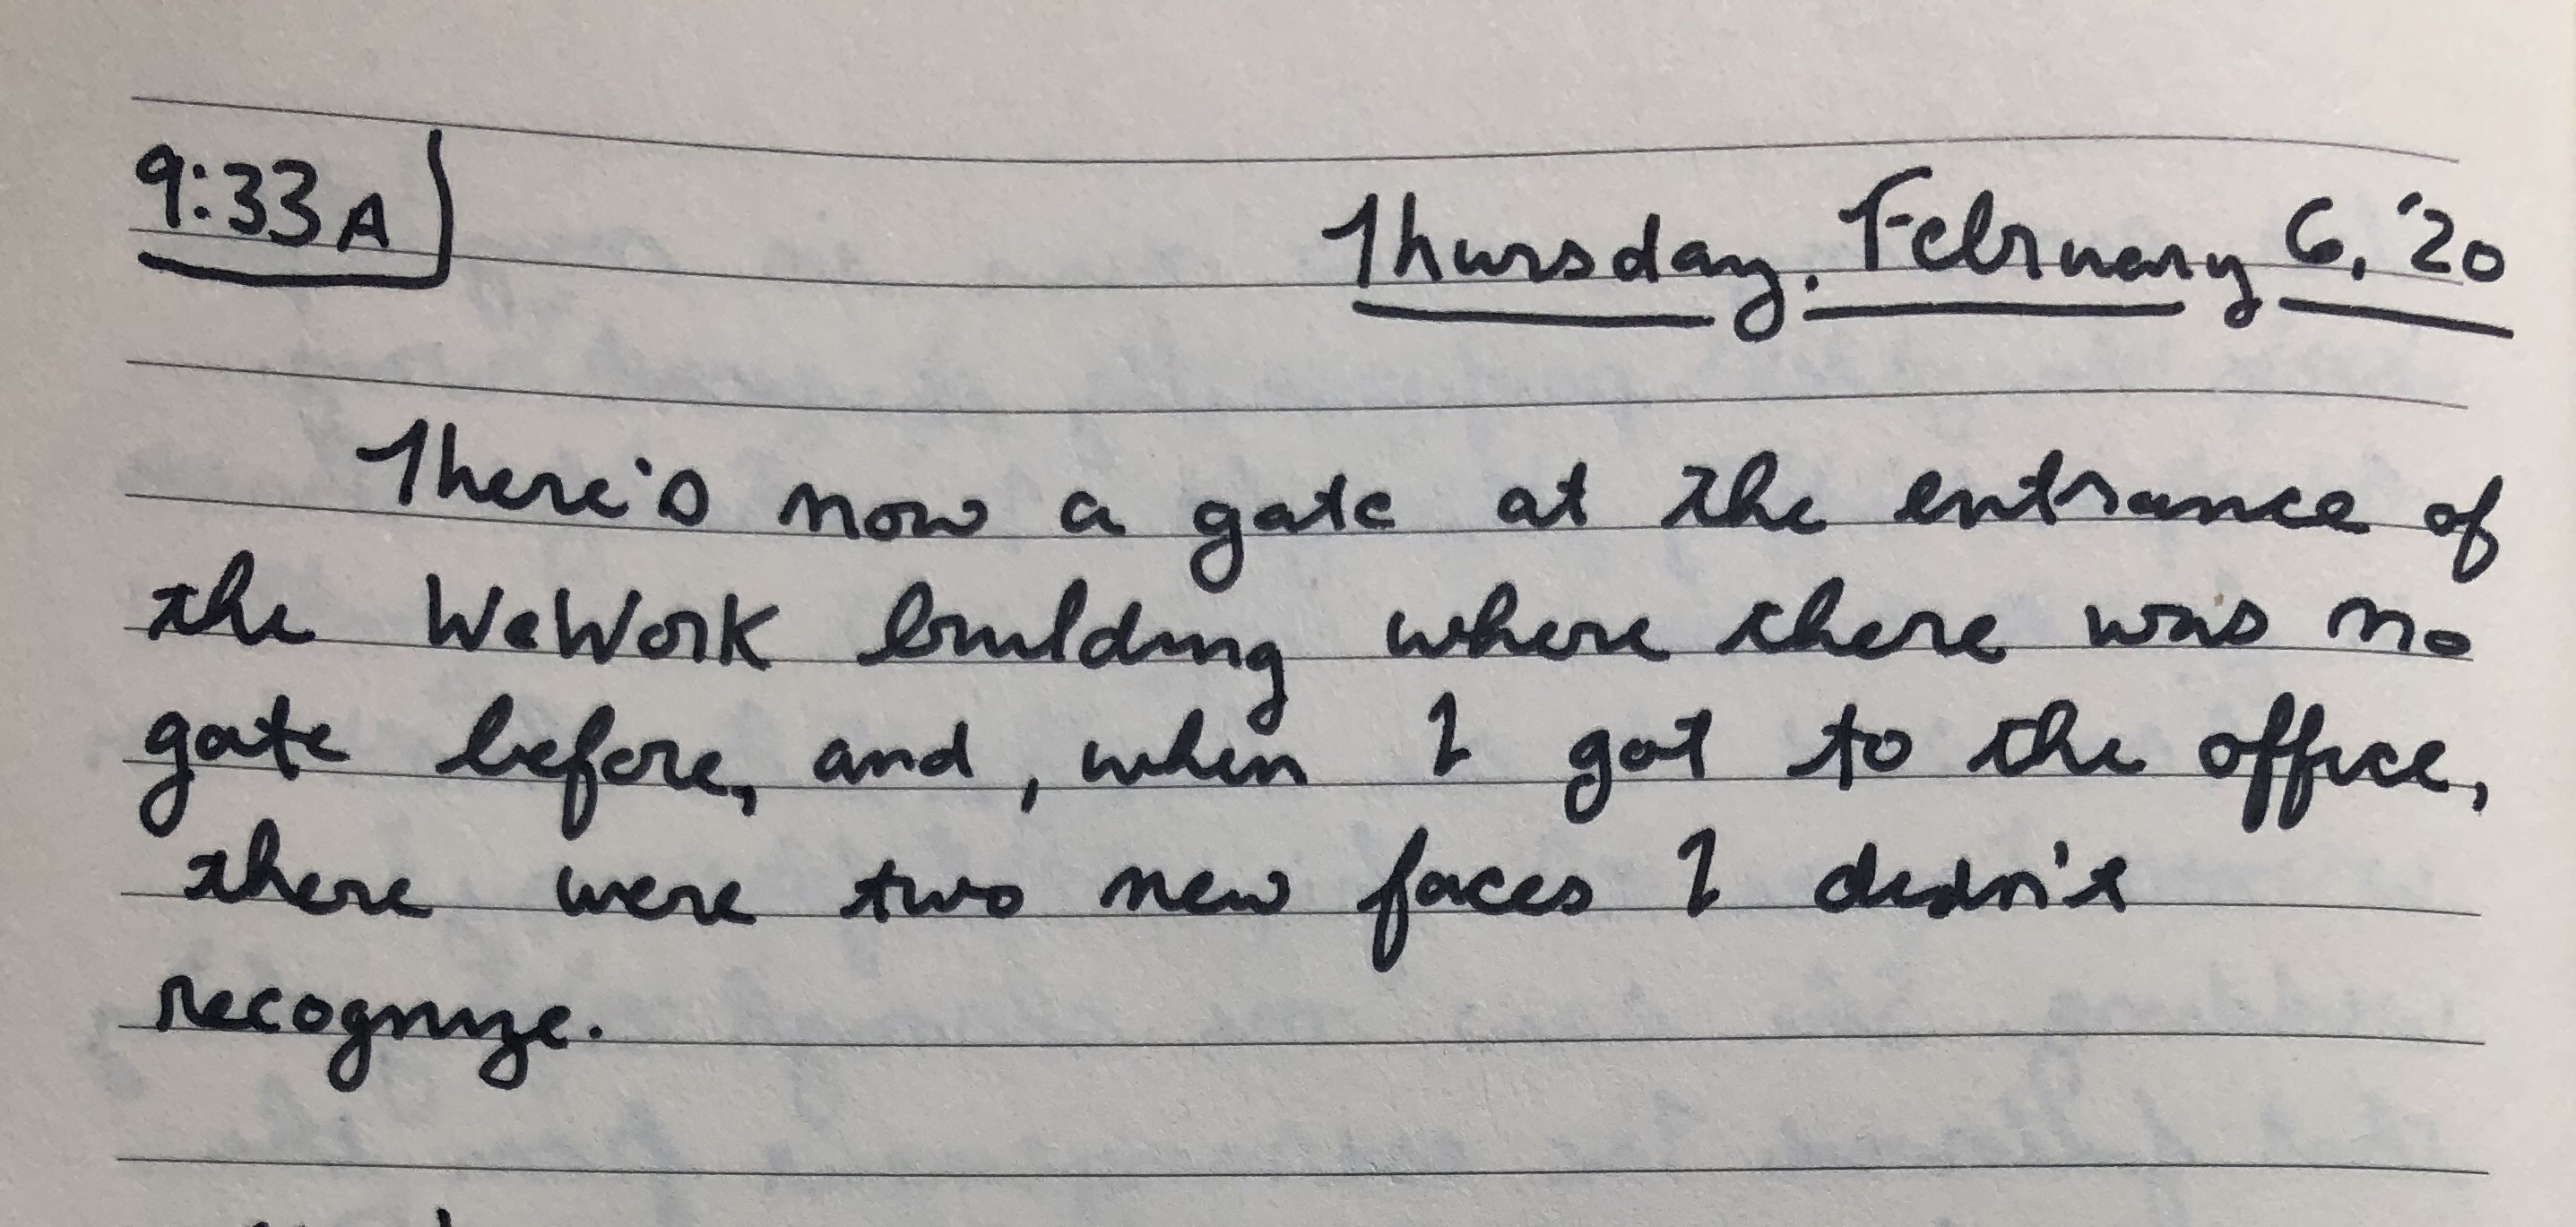 9:33A
Thursday. February 6, '20
There's now a gate at the entrance of
the WeWork building where there was no
gate before, and, when I got to the office,
there were two new faces I didn't
recognize.